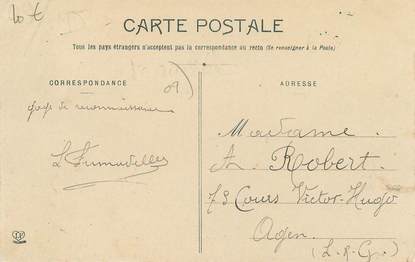 60 €
CARTE POSTALE
Tous les pays étrangers n'acceptent pas la correspondance au recto (Se renseigner à la Poste)
CORRESPONDANCE
ADRESSE
gage de reconnaissance
L. Fumadelles
Madame
A. Robert.
73 Cours Victor-Hugo
Agen.
(L.-&-G.)